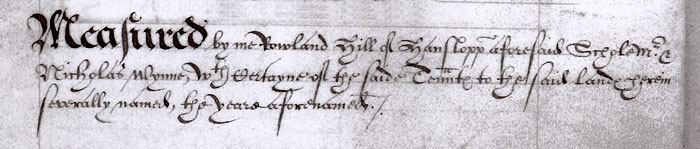 Measured by me Rowland Hill of Hansloppe aforesaid Scholemr. &
Nicholas Wynne, wth certayne of the saide Tennts to the said Lands herein
severally named, the yeare aforenamed./